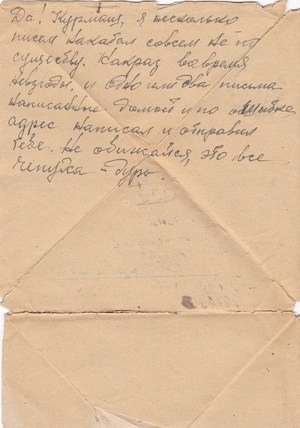 Да! Курмаш, я несколько
писем накатал совсем не по
существу. Как раз во время
невзгоды. и одно или два письма
написанные домой и по ошибке
адрес написал и отправил
тебе. не обижайся, это все
чепуха - дурь.